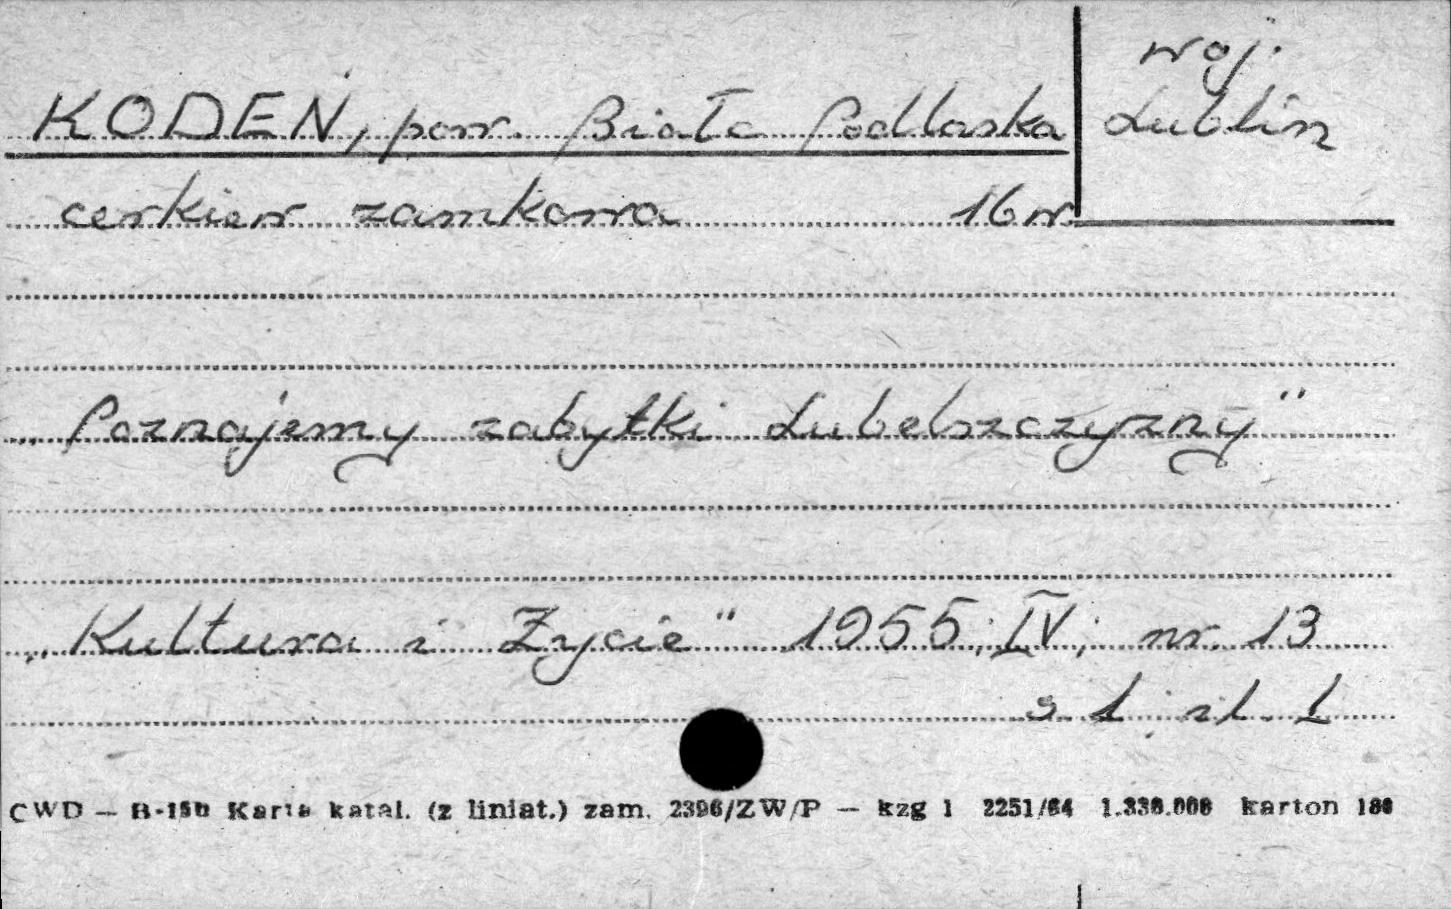 KODEŃ, pow. Biała Podlaska
woj.
Lublin
cerkiew zamkowa 16 w.
„Poznajemy zabytki Lubelszczyzny"
„Kultura i Życie" 1955; IV; nr. 13
s. 1; il. 1
CWD — B-150 Karta katal. (z liniat.) zam. 2396/ZW/P — kzg 1 2251/64 karton 180